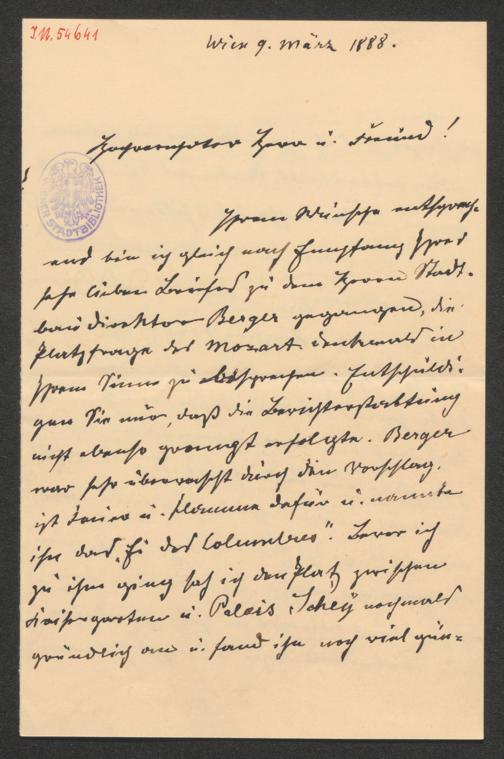 I.N. 54641
Wien 9. März 1888.
Hochverehrter Herr u. Freund!
STADTBIBLIOTHEK
Ihrem Wunsche entsprech-
end bin ich gleich nach Empfang Ihres
sehr lieben Briefes zu dem Herrn Stadt-
baudirektor Berger gegangen, die
Platzfrage des Mozart denkmals in
Ihrem Sinne zu besprechen. Entschuldi-
gen Sie nur, daß die Berichterstattung
nicht ebenso prompt erfolgte. Berger
war sehr überrascht durch den Vorschlag,
ist Feuer u. Flamme dafür u. nannte
ihn das „Ei des Columbus“. Bevor ich
zu ihm ging sah ich den Platz zwischen
Kaisergarten u. Palais Schey nochmals
gründlich an u. fand ihn noch viel gün-